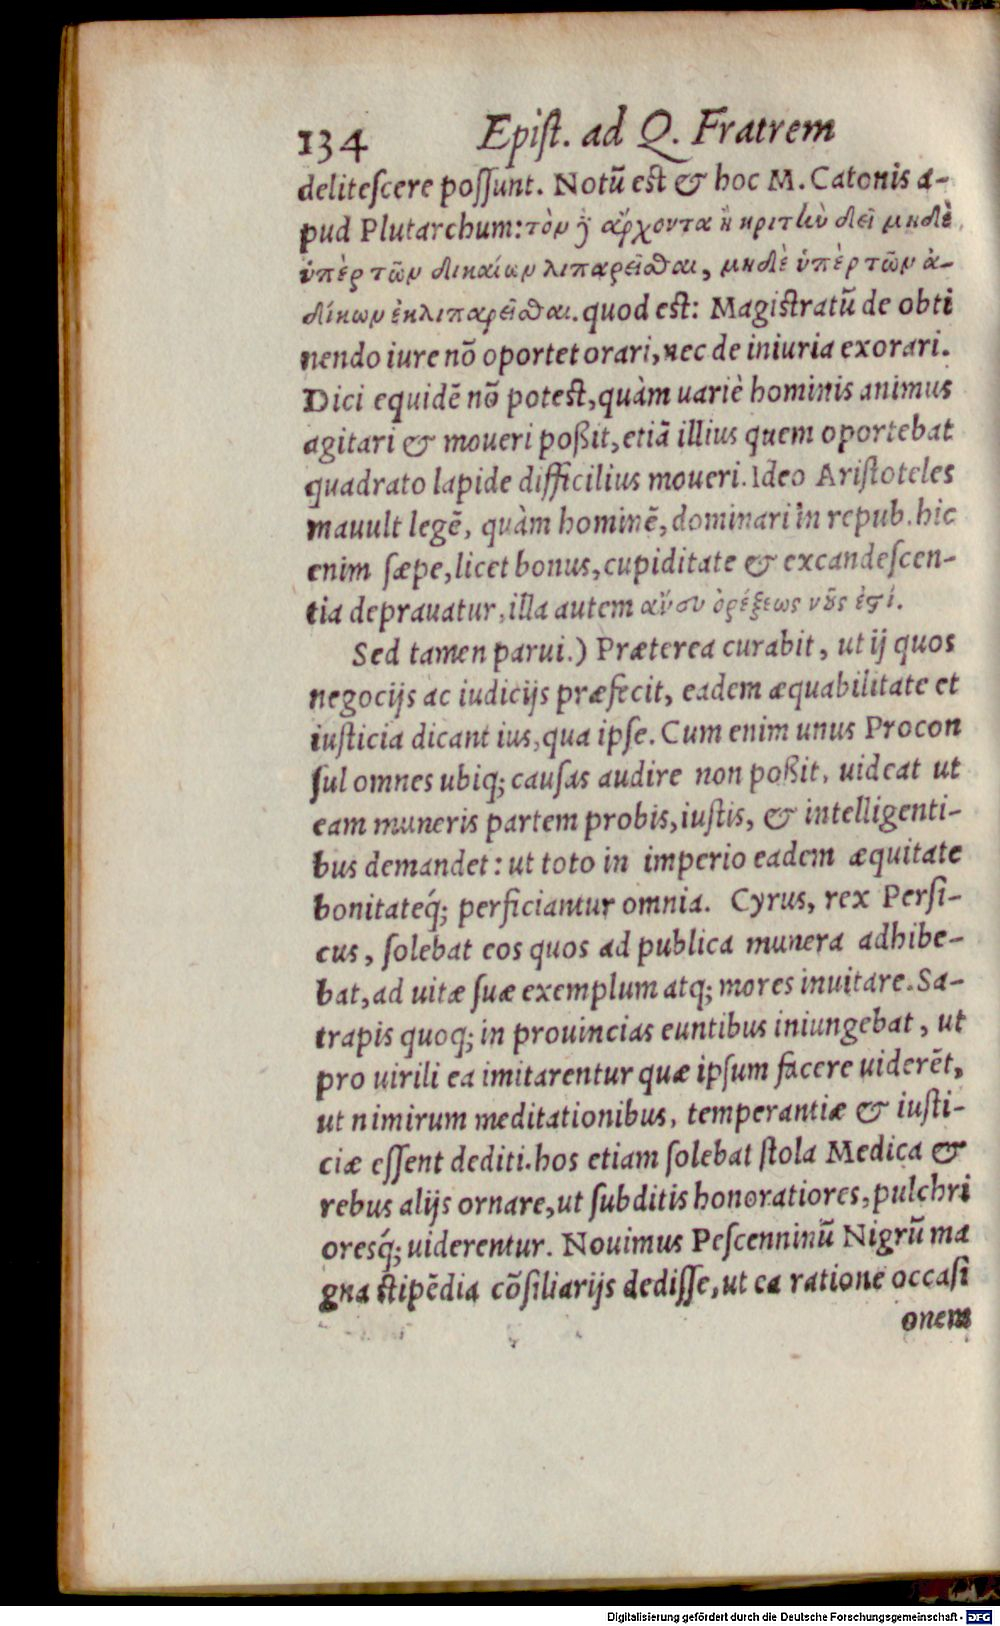 134 Epiſt. ad Q. Fratrem
deliteſcere poſſunt. Notũ est & hoc M. Catonis a-
pud Plutarchum: τὸν ἢ ἄρχοντα ἢ κριτὴν δεῖ μηδὲ
ὑπὲρ τῶν δικαίων λιπαρεῖσθαι, μηδὲ ὑπὲρ τῶν ἀ-
δίκων ἐκλιπαρεῖσθαι. quod est: Magistratũ de obti
nendo iure nõ oportet orari, nec de iniuria exorari.
Dici equidẽ nõ potest, quàm uariè hominis animus
agitari & moueri poßit, etiã illius quem oportebat
quadrato lapide difficilius moueri. Ideo Ariſtoteles
mauult legẽ, quàm hominẽ, dominari in repub. hic
enim ſæpe, licet bonus, cupiditate & excandeſcen-
tia deprauatur, illa autem ἄνευ ὀρέξεως νȣ̃ς ἐϛί.
Sed tamen parui.) Præterea curabit, ut ij quos
negocijs ac iudicijs præfecit, eadem æquabilitate et
iuſticia dicant ius, qua ipſe. Cum enim unus Procon
ſul omnes ubiq; cauſas audire non poßit, uideat ut
eam muneris partem probis, iuſtis, & intelligenti-
bus demandet: ut toto in imperio eadem æquitate
bonitateq́; perficiantur omnia. Cyrus, rex Perſi-
cus, ſolebat eos quos ad publica munera adhibe-
bat, ad uitæ ſuæ exemplum atq; mores inuitare. Sa-
trapis quoq; in prouincias euntibus iniungebat, ut
pro uirili ea imitarentur quæ ipſum facere uiderẽt,
ut nimirum meditationibus, temperantiæ & iuſti-
ciæ eſſent dediti. hos etiam ſolebat ſtola Medica &
rebus alijs ornare, ut ſubditis honoratiores, pulchri
oresq́; uiderentur. Nouimus Peſcenninũ Nigrũ ma
gna stipẽdia cõſiliarijs dediſſe, ut ea ratione occaſi
onem
Digitalisierung gefördert durch die Deutsche Forschungsgemeinschaft - DFG